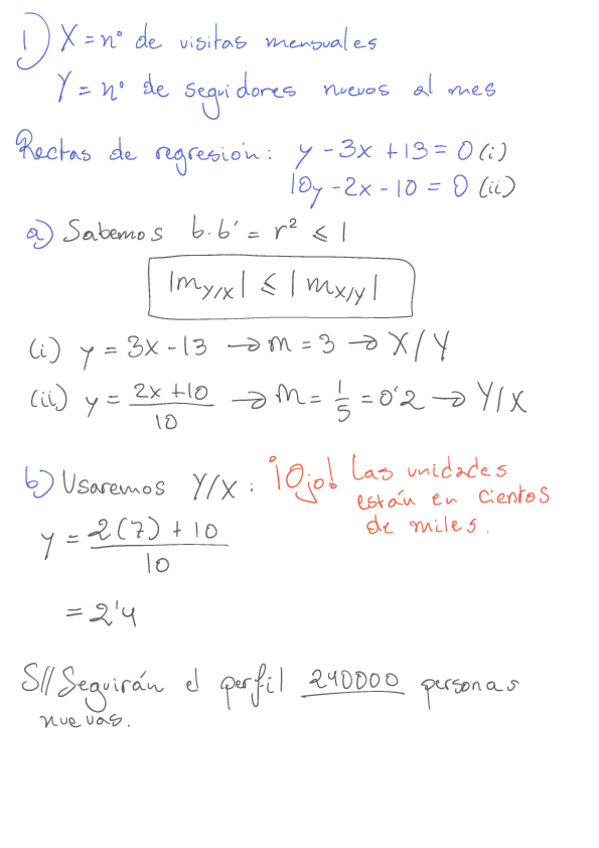 1) X = nº de visitas mensuales
Y = nº de seguidores nuevos al mes
Rectas de regresión: y - 3x + 13 = 0 (i)
10y - 2x - 10 = 0 (ii)
a) Sabemos b·b' = r² ⩽ 1
|m_{Y/X}| ⩽ |m_{X/Y}|
(i) y = 3x - 13 → m = 3 → X/Y
(ii) y = \frac{2x + 10}{10} → m = \frac{1}{5} = 0'2 → Y/X
b) Usaremos Y/X: ¡Ojo! Las unidades
están en cientos
de miles.
y = \frac{2(7) + 10}{10}
= 2'4
S// Seguirán el perfil 240000 personas
nuevas.